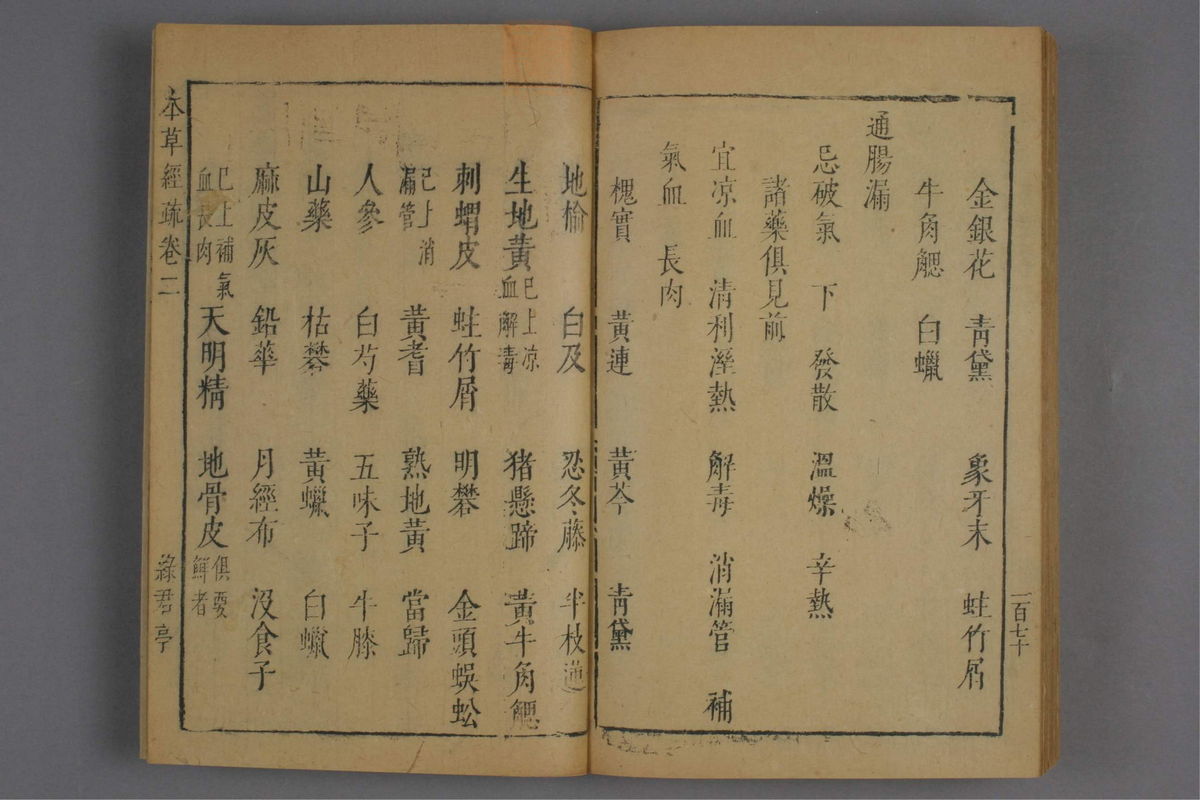 金銀花 靑黛 象牙末 蛀竹屑
牛角䚡 白蠟
通腸漏
忌破氣 下 發散 溫燥 辛熱
諸藥俱見前
宜凉血 清利溼熱 解毒 消漏管 補
氣血 長肉
槐實 黃連 黃芩 靑黛
一百七十
地榆 白及 忍冬藤 半枝蓮
生地黃 已上凉血解毒 猪懸蹄 黃牛角䚡
刺蝟皮 蛀竹屑 明礬 金頭蜈蚣
已上消漏管 黃耆 熟地黃 當歸
人參 白芍藥 五味子 牛膝
山藥 枯礬 黃蠟 白蠟
麻皮灰 鉛華 月經布 沒食子
已上補氣血長肉 天明精 地骨皮 俱要鮮者
本草經疏卷二 綠君亭